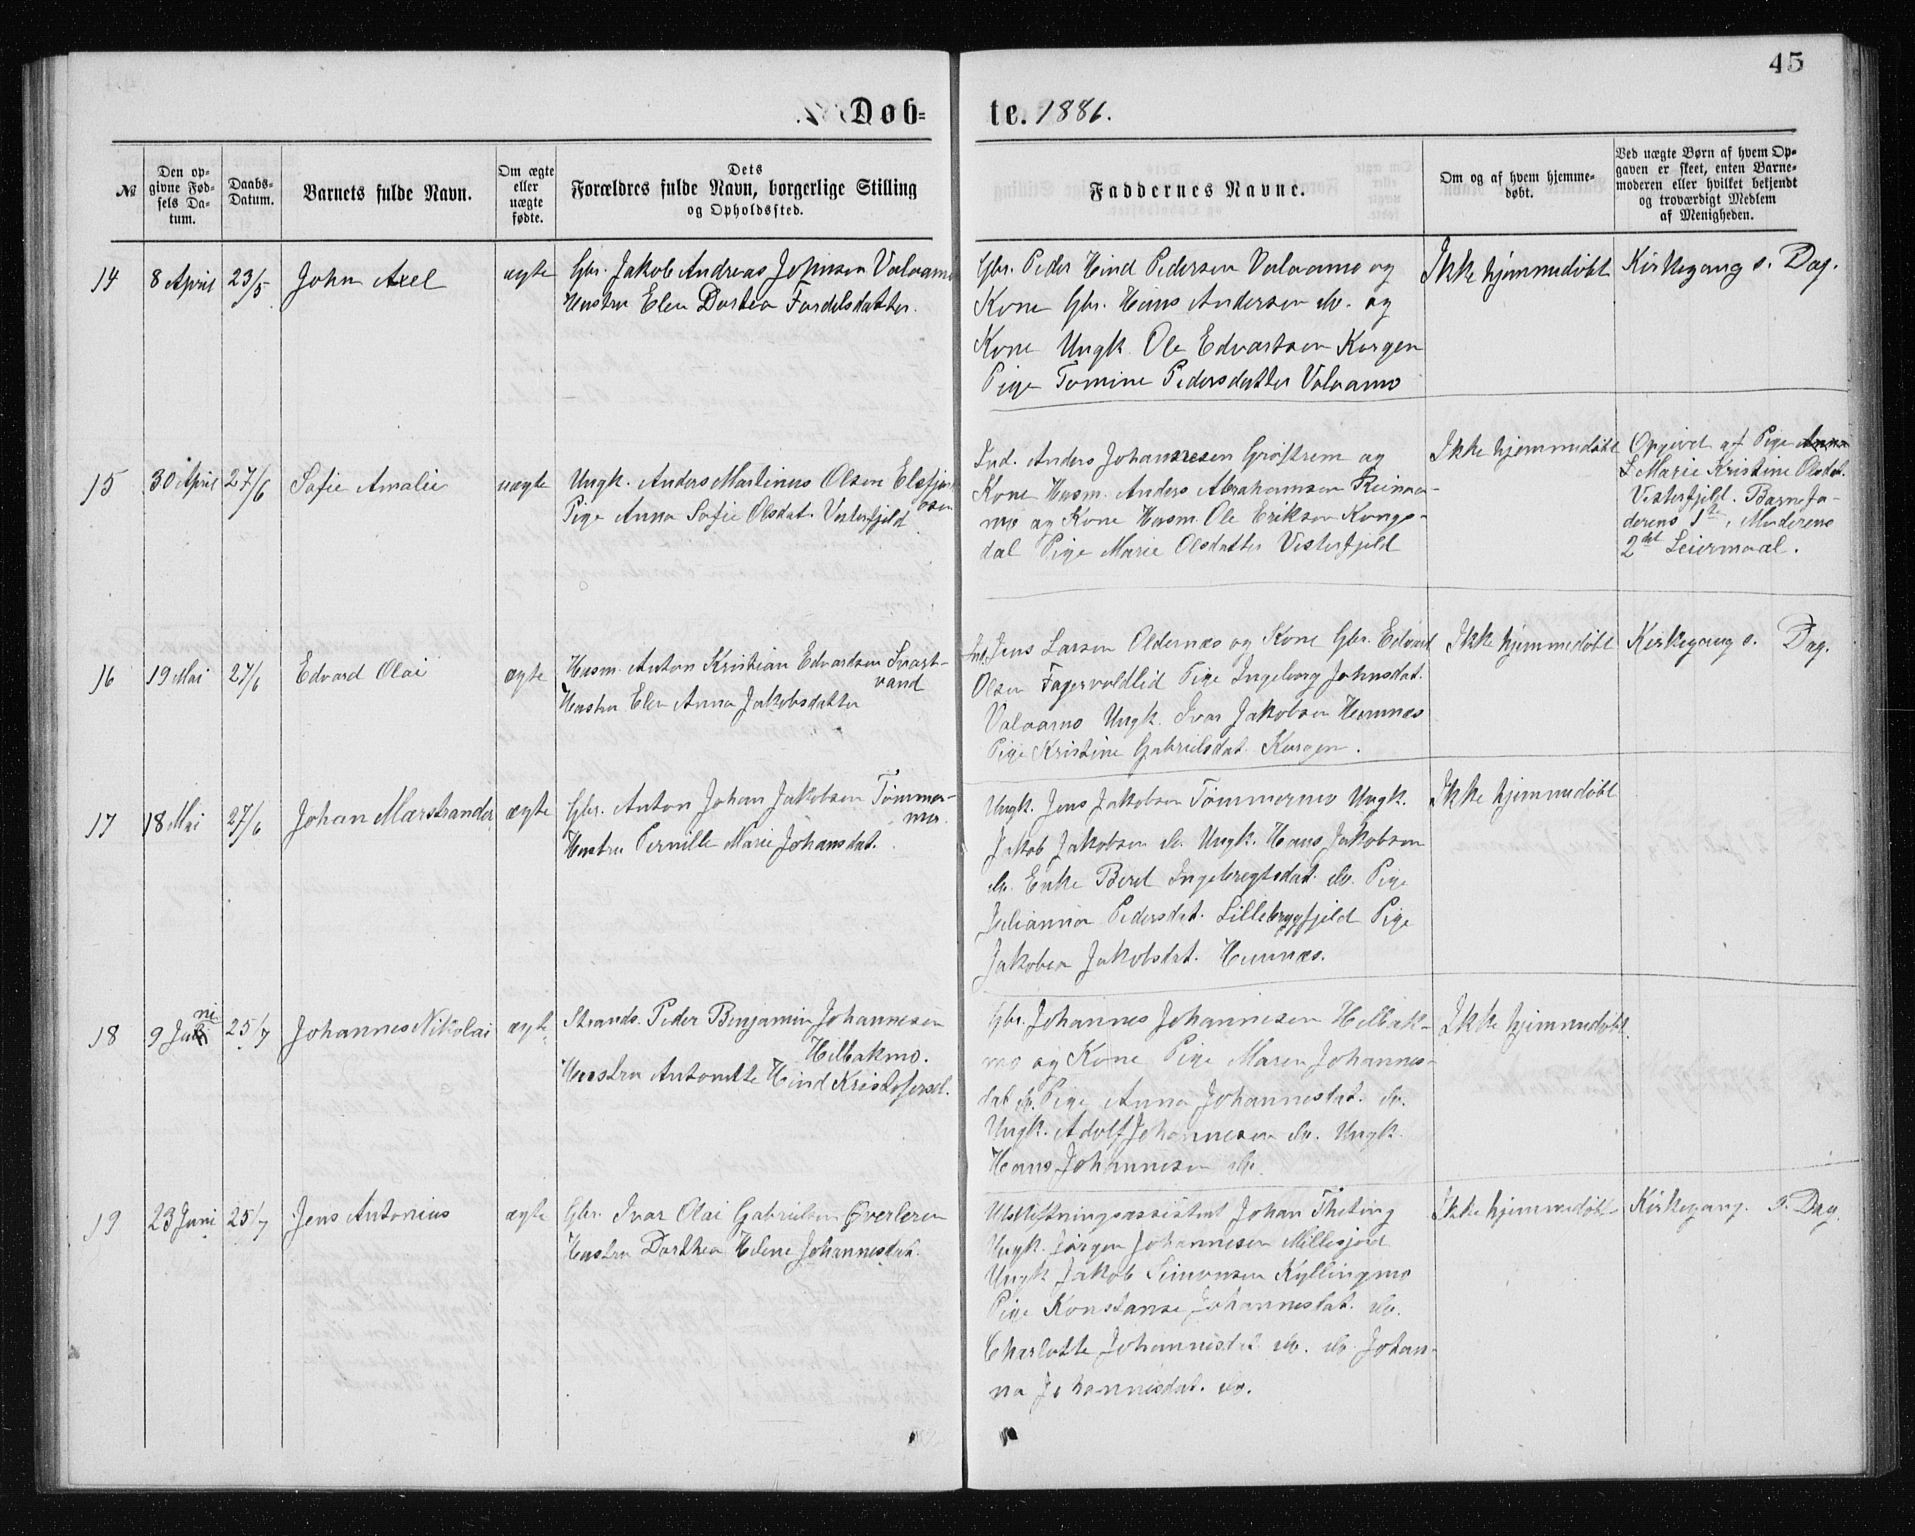 45
Døb=
te. 1886.
№
Den op-
givne Fød-
sels Da-
tum.
Daabs-
Datum.
Barnets fulde Navn.
Om ægte
eller
uægte
fødte.
Dets
Forældres fulde Navn, borgerlige Stilling
og Opholdssted.
Faddernes Navne.
Om og af hvem hjemme-
døbt.
Ved uægte Børn af hvem Op-
gaven er skeet, enten Barne-
moderen eller hvilket bekjendt
og troværdigt Medlem
af Menigheden.
14
8 April
23/5
John Axel
ægte
Gbr. Jakob Andreas Johnsen Valaamo
Hustru Elen Dortea Fardelsdatter.
Gbr. Peder Hind Pedersen Valaamo og
Kone Gbr. Hans Andersen do. og
Kone Ungk. Ole Edvartsen Korgen
Pige Tomine Pedersdatter Valaamo
Ikke hjemmedøbt
Kirkegang s. Dag.
15
30 April
27/6
Sofie Amalie
uægte
Ungk. Anders Martinus Olsen Elsfjord
osen
Pige Anna Sofie Olsdat. Vesterfjeld
Ind. Anders Johannesen Grøftrem og
Kone Husm. Anders Abrahamsen Reinaa-
mo og Kone Husm. Ole Eriksen Kongs-
dal Pige Marie Olsdatter Vesterfjeld
Ikke hjemmedøbt
Opgivet af Pige Anna
Marie Kristine Olsdat.
Vesterfjeld. Barnefa-
derens 1ste, Moderens
2det Leiermaal.
16
19 Mai
27/6
Edvard Olai
ægte
Husm. Anton Kristian Edvardsen Svart-
vand
Hustru Elen Anna Jakobsdatter
Ind. Jens Larsen Oldernæs og Kone Gbr. Edvard
Olsen Fagervoldlid Pige Ingeborg Johnsdat.
Valaamo Ungk. Ivar Jakobsen Hemnæs
Pige Kristine Gabrielsdat. Korgen.
Ikke hjemmedøbt
Kirkegang s. Dag.
17
18 Mai
27/6
Johan Marstrander
ægte
Gbr. Anton Johan Jakobsen Tømmer-
mo.
Hustru Pernille Marie Johansdat.
Ungk. Jens Jakobsen Tømmermo Ungk.
Jakob Jakobsen do. Ungk. Hans Jakobsen
do. Enke Beret Ingebregtsdat. do. Pige
Julianna Pedersdat. Lillebrygfjeld Pige
Jakobea Jakobsdat. Hemnæs.
Ikke hjemmedøbt
18
9 Juni
25/7
Johannes Nikolai
ægte
Strands. Peder Benjamin Johannesen
Helbakmo.
Hustru Antonette Hind Kristofersd.
Gbr. Johannes Johannesen Helbak-
mo og Kone Pige Maren Johannes-
dat do. Pige Anna Johannesdat. do.
Ungk. Adolf Johannesen do. Ungk.
Hans Johannesen do.
Ikke hjemmedøbt.
19
23 Juni
25/7
Jens Antonius
ægte
Gbr. Ivar Olai Gabrielsen Øverleren
Hustru Dorthea Helene Johannesdat.
Udskiftningsassistent Johan Theting
Ungk. Jørgen Johannesen Millesjord
Ungk Jakob Simonsen Kyllingmo
Pige Konstanse Johannesdat. do.
Charlotte Johannesdat do. do Johan-
na Johannesdat. do.
Ikke hjemmedøbt
Kirkegang. s. Dag.